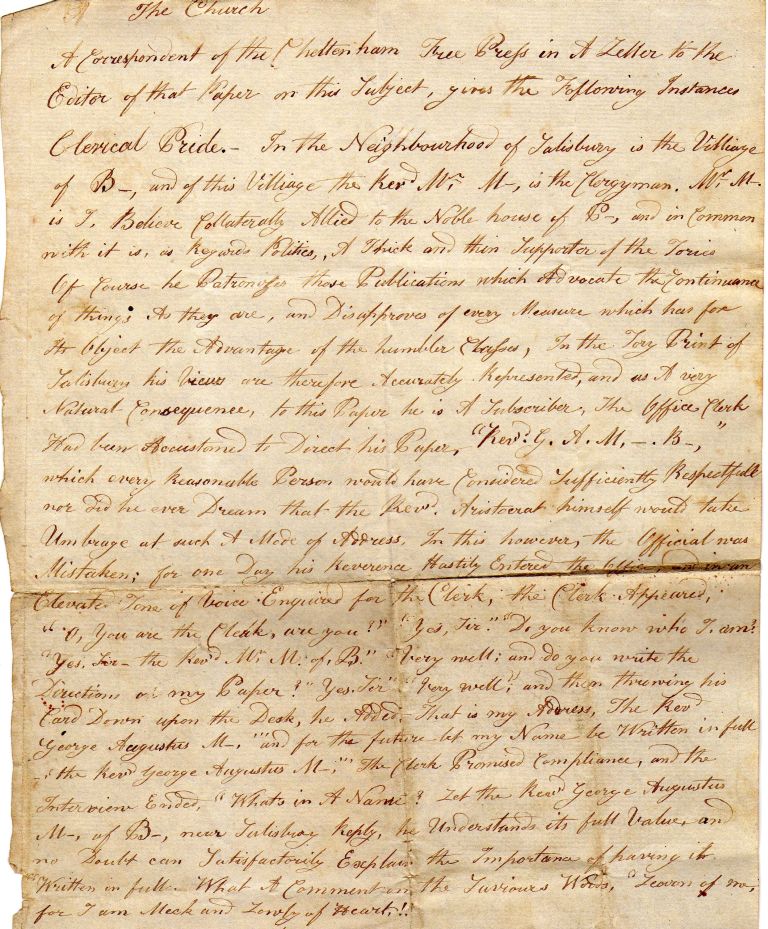 The Church
A Correspondent of the Cheltenham Free Press in A Letter to the
Editor of that Paper on this Subject, gives the Following Instances
Clerical Pride.- In the Neighbourhood of Salisbury is the Villiage
of B-, and of this Villiage the Revd Mr. M-, is the Clergyman. Mr. M-
is I, Believe Collaterally Allied to the Noble house of P-, and in Common
with it is, as Regards Politics, A Thick and thin Supporter of the Tories
Of Course he Patronises those Publications which Advocate the Continuance
of things As they are, and Disapproves of every Measure which has for
Its Object the Advantage of the humbler Classes, In the Tory Print of
Salisbury his Views are therefore Accurately Represented, and as A very
Natural Consequence, to this Paper he is A Subscriber, The Office Clerk
Had been Accustomed to Direct his Paper, "Revd. G. A. M, -. B-,"
which every Reasonable Person would have Considered Sufficiently Respectfull
nor did he ever Dream that the Revd. Aristocrat himself would take
Umbrage at such A Mode of Address, In this however, the Official was
Mistaken; for one Day his Reverence Hastily Entered the Office and in an
Elevated Tone of Voice Enquired for the Clerk, the Clerk Appeared,
"O, You are the Clerk, are you?" "Yes, Sir." "Do you know who I, am?
"Yes, Sir- the Revd Mr M: of, B." "Very well; and do you write the
Directions on my Paper?" Yes, Sir" "Very well"; and then throwing his
Card Down upon the Desk, he Added, That is my Address, The Revd
George Augustus M-, "and for the future let my Name be Written in full
-: the Revd George Augustus M-;" The Clerk Promised Compliance, and the
Interview Ended, "Whats in A Name"? Let the Revd George Augustus
M-, of B-, near Salisbury Reply, he Understands its full Value, and
no Doubt can Satisfactorily Explain the Importance of having it
Written in full. What A Comment on the Saviours Words, "Learn of me,
for I am Meek and Lowly of Heart,!!